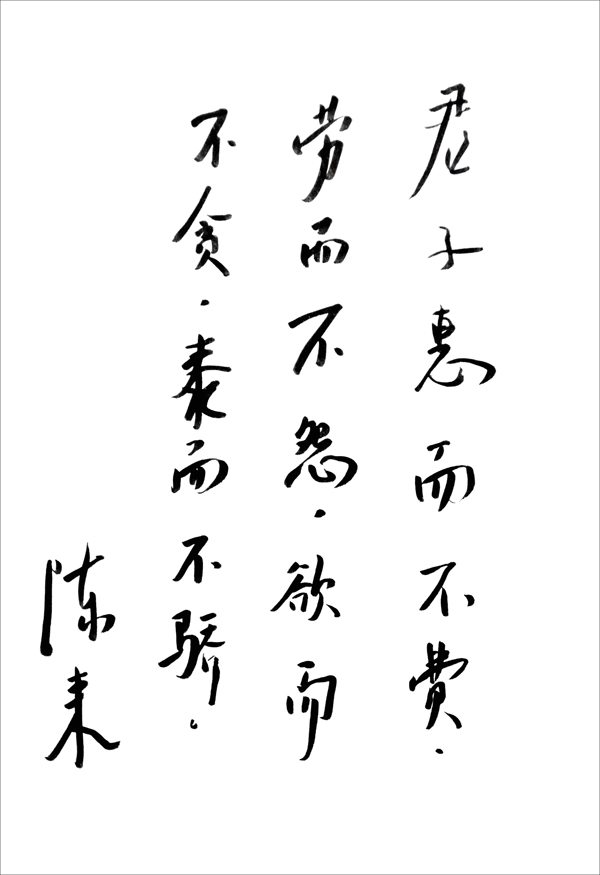 君子惠而不費．
劳而不怨．欲而
不贪．泰而不骄．
陈来